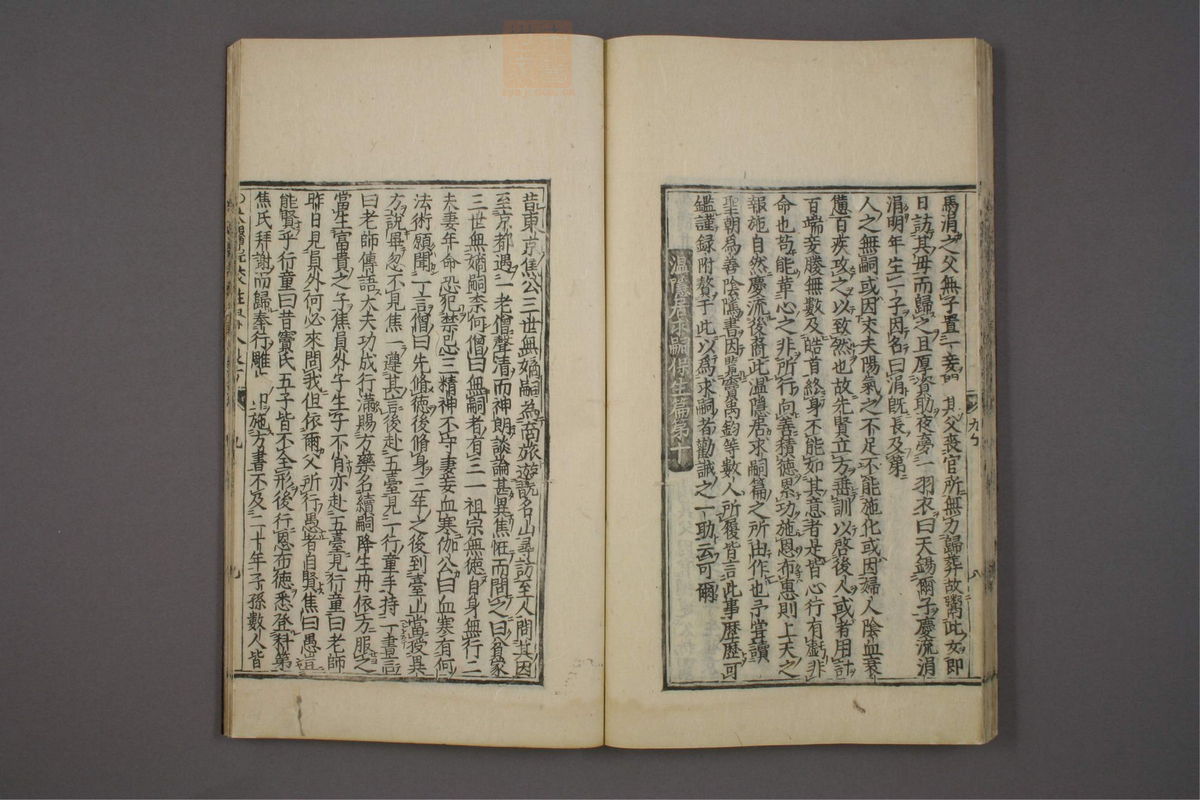 馬涓之父無子置一妾 其父喪官所無力歸葬故鬻此女即
日訪其母而歸之且厚資助夜夢一羽衣曰天錫爾子慶流涓
涓明年生一子因名曰涓既長及第
人之無嗣或因丈夫陽氣之不足不能施化或因婦人陰血衰
憊百疾攻之以致然也故先賢立方垂訓以啓後人或者用計
百端妾媵無數及皓首終身不能如其意者是皆心行有虧非
命也苟能革心之非所行向善積德累功施恩布惠則上天之
報施自然慶流後裔此溫隱居求嗣篇之所由作也予嘗讀
聖朝為善陰隲書因覽竇禹鈞等數人所獲皆言此事歷歷可
鑑謹録附贅于此以為求嗣者勸誡之一助云可爾
溫隱居求嗣保生篇第十
昔東京焦公三世無嫡嗣為商旅遊翫名山尋訪至人問其因
至京都遇一老僧聲清而神朗談論甚異焦恠而問之曰貧家
三世無嫡嗣柰何僧曰無嗣者有三一祖宗無德自身無行二
夫妻年命恐犯禁忌三精神不守妻妾血寒伽公曰血寒有何
法術願聞一言僧曰先脩德後脩身三年之後到臺山當授異
方說畢忽不見焦一遵其言後赴五臺見一行童手持一書言
曰老師傳語大夫功成行滿賜方藥名續嗣降生丹依方服之
當生富貴之子焦員外子生子不肖亦赴五臺見行童曰老師
昨日見員外何必來問我但依爾父所行愚者自賢焦曰愚
能賢乎行童曰昔竇氏五子皆不全形後行恩布德悉登科第
焦氏拜謝而歸奉行雕 施方書不及二十年子孫數人皆
九
八